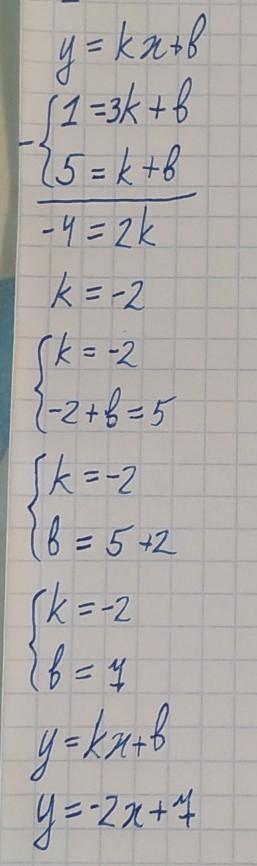 y = kx+b
1=3k+b
5=k+b
-4=2k
k=-2
k=-2
-2+b=5
k=-2
b=5+2
k=-2
b=7
y=kx+b
y=-2x+7